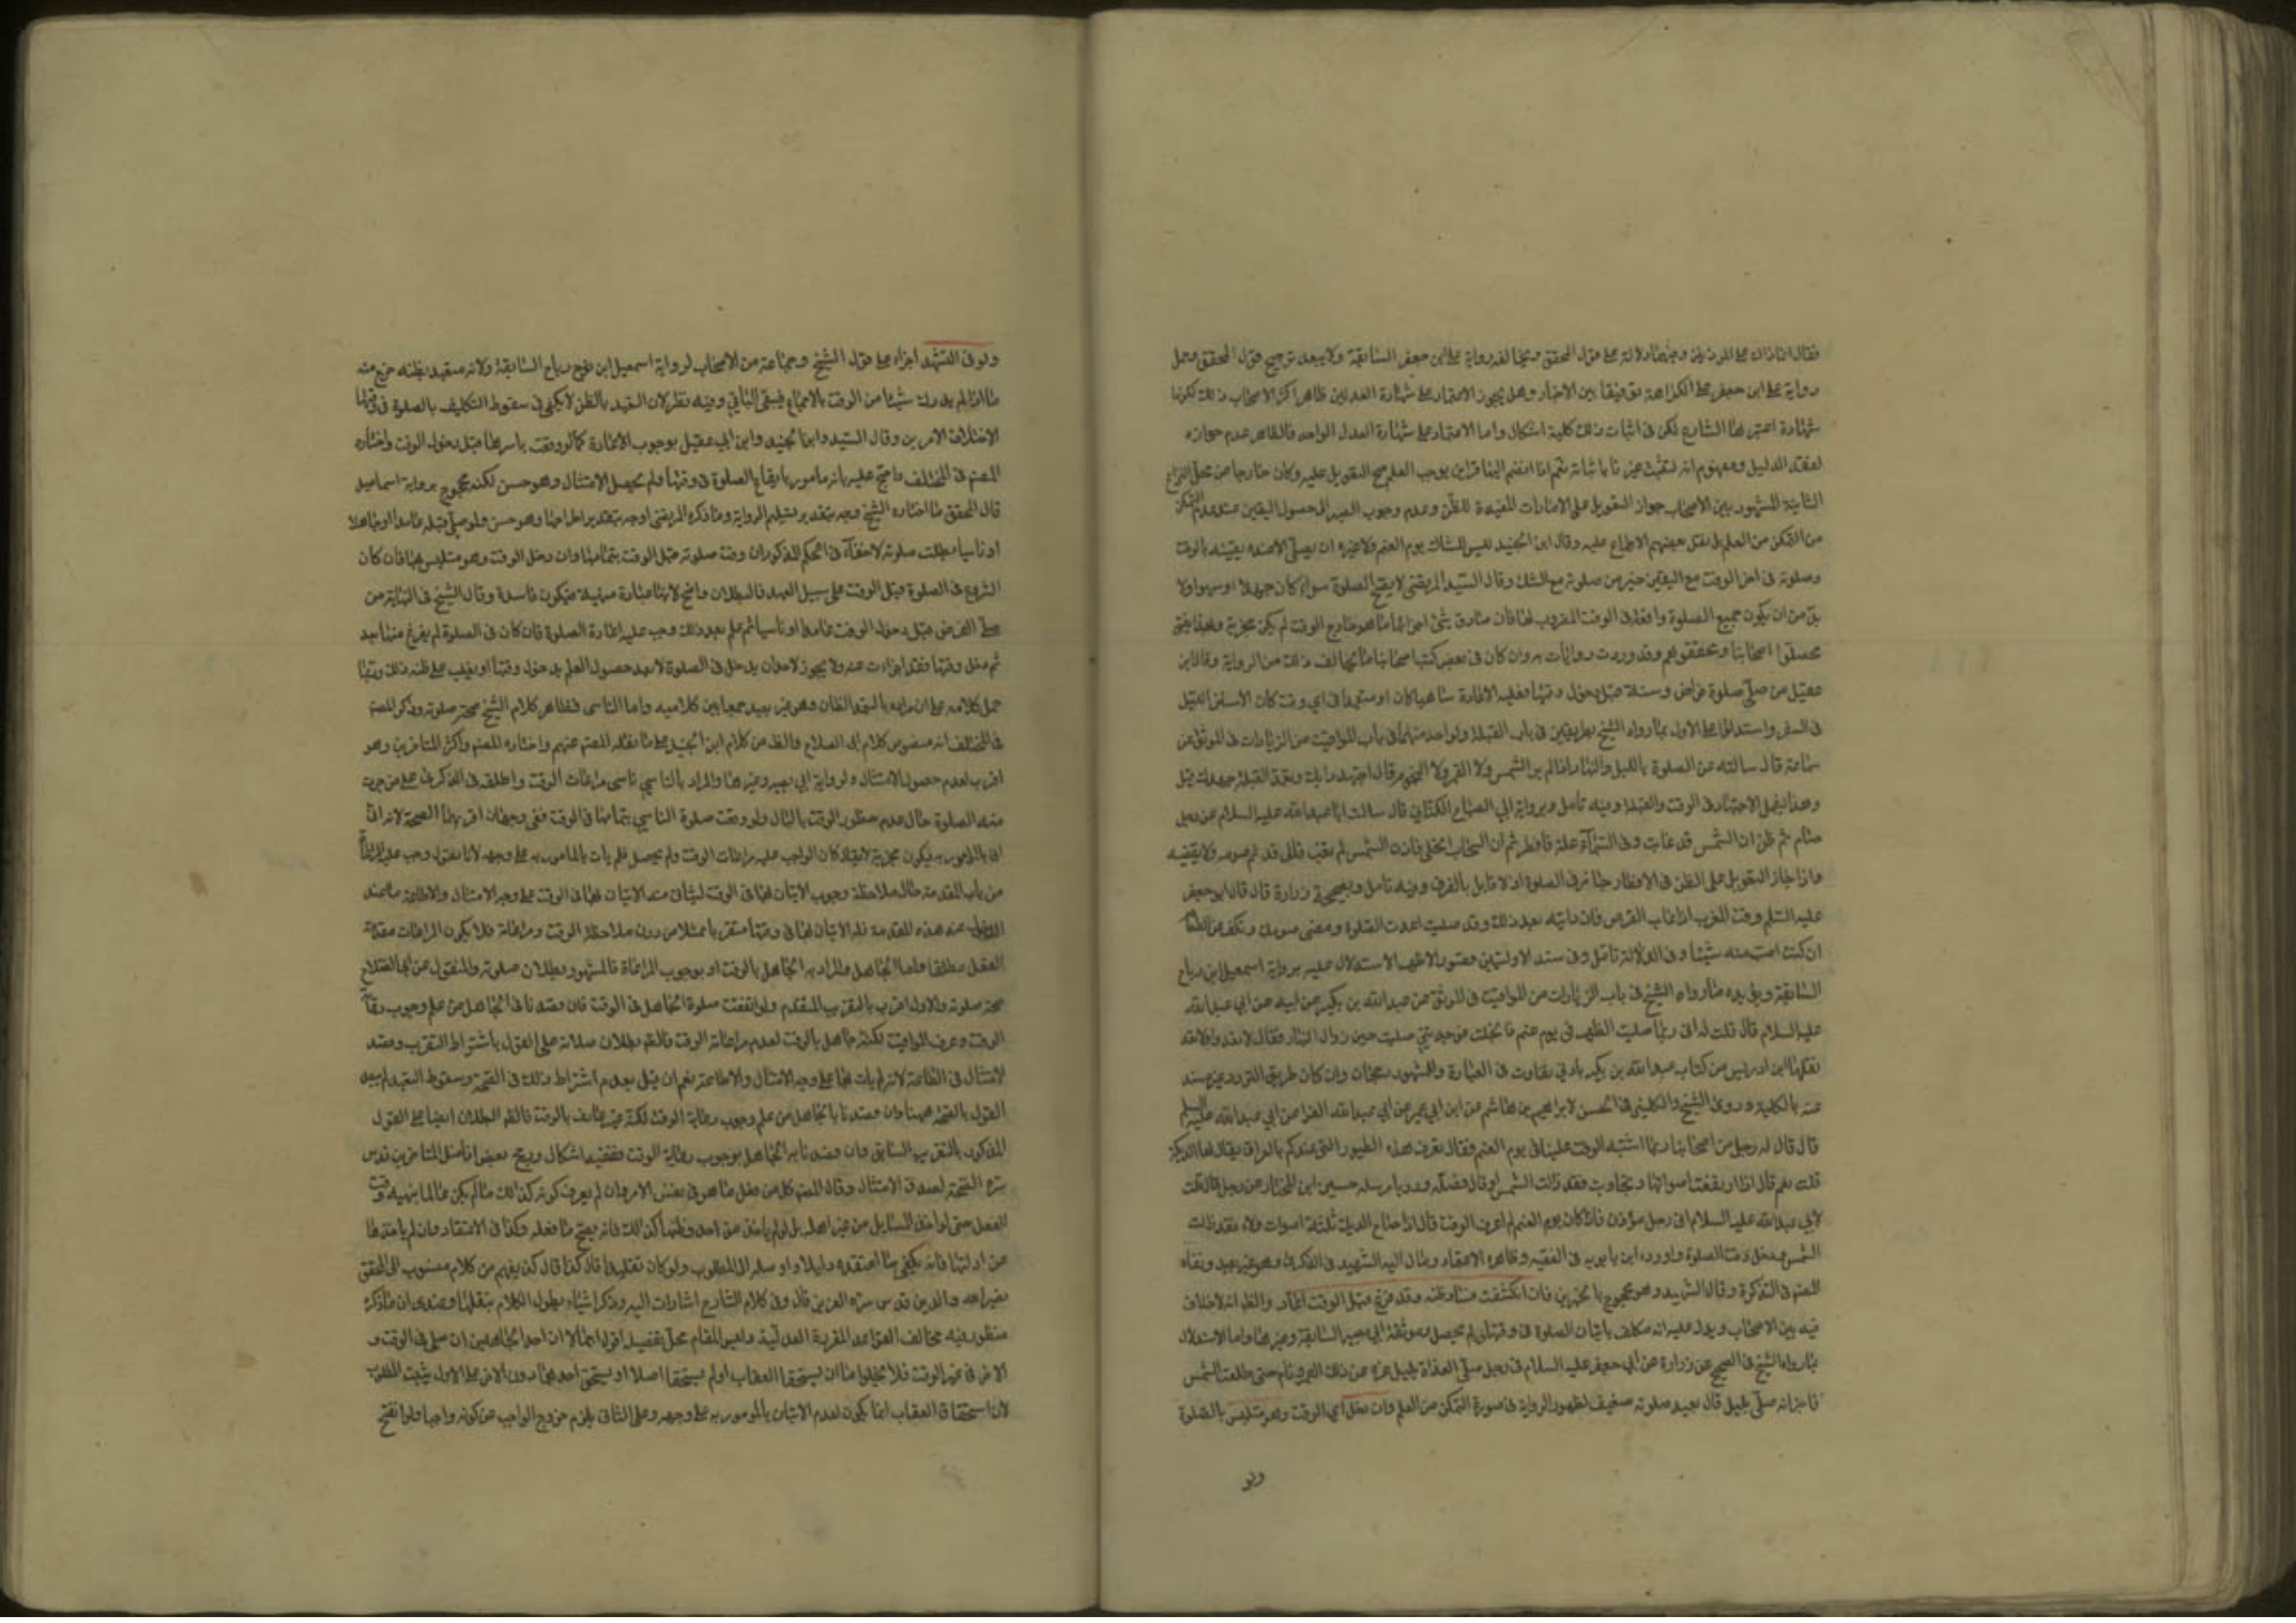 فقال انما ذاك على المؤذنين وفيهما دلالة على قول المحقق ويخالفه رواية على ابن جعفر السابقة ولا يبعد ترجيح قول المحقق وحمل
رواية على ابن جعفر على الكراهة توفيقا بين الاخبار وهل يجوز الاعتماد على شهادة العدلين ظاهر اكثر الاصحاب ذلك لكونها
شهادة اعتبرها الشارع لكن في اثبات ذلك كلية اشكال واما الاعتماد على شهادة العدل الواحد فالظاهر عدم جوازه
لفقد الدليل ومفهوم اية التثبت غير ناهض باثباته نعم اذا انضم اليها قراين يوجب العلم صح التعويل عليه وكان خارجا من محل النزاع
الثانية المشهور بين الاصحاب جواز التعويل على الامارات المفيدة للظن وعدم وجوب الصبر الى حصول اليقين عند عدم التمكن
من التمكن من العلم بل نقل بعضهم الاجماع عليه وقال ابن الجنيد ليس للشاك يوم الغيم ولا غيره ان يصلي الا عند يقينه بالوقت
وصلوته في اخر الوقت مع اليقين خير من صلوته مع الشك وقال السيد المرتضى لا يصح الصلوة سواء كان جهلا او سهوا ولا
بد من ان يكون جميع الصلوة واقعة في الوقت المضروب لها فان صادف شئ من اجزائها ما هو خارج الوقت لم يكن مجزية وبهذا يفتي
محصلوا اصحابنا ومحققوهم وقد وردت روايات به وان كان في بعض كتب اصحابنا ما يخالف ذلك من الرواية وقال ابن
عقيل من صلى صلوة فرض وسنة قبل دخول وقتها فعليه الاعادة ساهيا كان او متعمدا في اي وقت كان الا سنن الليل
في السفر واستدل على الاول بما رواه الشيخ بطريقين في باب القبلة ولواحد منهما في باب المواقيت من الزيادات في الموثق عن
سماعة قال سالته عن الصلوة بالليل والنهار اذا لم ير الشمس ولا القمر ولا النجوم قال اجتهد رايك وتعمد القبلة جهدك قيل
وهذا يشمل الاجتهاد في الوقت والقبلة وفيه تأمل وبرواية ابي الصباح الكناني قال سالت ابا عبد الله عليه السلام عن رجل
صام ثم ظن ان الشمس قد غابت وفي السماء علة فافطر ثم ان السحاب انجلى فاذا الشمس لم تغب فقال قد تم صومه ولا يقضيه
واذا جاز التعويل على الظن في الافطار جاز في الصلوة اذ لا قايل بالفرق وفيه تأمل وبصحيحة زرارة قال قال ابو جعفر
عليه السلم وقت المغرب اذا غاب القرص فان رايته بعد ذلك وقد صليت اعدت الصلوة ومضى صومك وتكف عن الطعام
ان كنت اصبت منه شيئا وفي الدلالة تأمل وفي سند الاوليتين قصور الاظهر الاستدلال عليه برواية اسمعيل ابن رباح
السابقة ويؤيده ما رواه الشيخ في باب الزيادات من المواقيت في الموثق عن عبد الله بن بكير عن ابيه عن ابي عبد الله
عليه السلام قال قلت له اني ربما صليت الظهر في يوم غيم فانجلت فوجدتني صليت حين زوال النهار فقال لا تعد ولا تعد
نقلها ابن ادريس من كتاب عبد الله بن بكير بادنى تفاوت في العبارة والمشهود
عنه بالكلية وروى الشيخ والكليني في الحسن لابراهيم بن هاشم عن ابن ابي عمير عن ابي عبد الله الفرا عن ابي عبد الله عليه السلم
قال قال له رجل من اصحابنا ربما اشتبه الوقت علينا في يوم الغيم فقال تعرف هذه الطيور التي عندكم بالعراق يقال لها الديكة
قلت نعم قال اذا ارتفعت اصواتها وتجاوبت فقد زالت الشمس او قال فصله وروى بارسله حسين ابن المختار عن رجل قال قلت
لابي عبد الله عليه السلام اني رجل مؤذن فاذا كان يوم الغيم لم اعرف الوقت قال اذا صاح الديك ثلثة اصوات ولاء فقد زالت
الشمس ودخل وقت الصلوة واورده ابن بابويه في الفقيه وظاهره الاعتماد ومال اليه الشهيد في الذكرى وهو غير بعيد ونفاه
المصنف في التذكرة وقال الشهيد وهو محجوج بالخبرين فان انكشفت فساد ظنه وقد فرغ قبل الوقت اعاد والظ انه لا خلاف
فيه بين الاصحاب ويدل عليه انه مكلف باتيان الصلوة في وقتها ولم يحصل وموثقة ابي بصير السابقة وغيرها واما الاستدلال
بما رواه الشيخ في الصحيح عن زرارة عن ابي جعفر عليه السلام في رجل صلى الغداة بليل غره من ذلك القمر ونام حتى طلعت الشمس
فاخبر انه صلى بليل قال يعيد صلوته ضعيف لظهور الرواية في صورة التمكن من العلم وان دخل اي الوقت وهو متلبس بالصلوة
ولو
ولو في التشهد اجزاه على قول الشيخ وجماعة من الاصحاب لرواية اسمعيل ابن رباح السابقة ولانه متعبد بظنه خرج منه
ما اذا لم يدرك شيئا من الوقت بالاجماع فيبقى الباقي وفيه نظر لان التعبد بالظن لا يكفي في سقوط التكليف بالصلوة في وقتها
لاختلاف الامرين وقال السيد وابن الجنيد وابن ابي عقيل بوجوب الاعادة كما لو وقعت باسرها قبل دخول الوقت واختاره
المصنف في المختلف واحتج عليه بانه مامور بايقاع الصلوة في وقتها ولم يحصل الامتثال وهو حسن لكنه محجوج برواية اسماعيل
قال المحقق ما اختاره الشيخ وجه بتقدير تسليم الرواية وما ذكره المرتضى اوجه بتقدير اطراحها وهو حسن ولو صلى قبله عامدا او جاهلا
او ناسيا بطلت صلوته لا خفاء في الحكم المذكور ان وقت صلوته قبل الوقت بتمامها وان دخل الوقت وهو متلبس بها فان كان
الشروع في الصلوة قبل الوقت على سبيل العمد فالبطلان واضح لانها عبادة منهية فيكون فاسدة وقال الشيخ في النهاية من
صلى الفرض قبل دخول الوقت عامدا او ناسيا ثم علم بعد ذلك وجب عليه اعادة الصلوة فان كان في الصلوة لم يفرغ منها بعد
ثم دخل وقتها فقد اجزات عنه ولا يجوز لاحد ان يدخل في الصلوة الا بعد حصول العلم بدخول وقتها او يغلب على ظنه ذلك
حمل كلامه على ان مراده بالمتعمد الظان وهو غير بعيد جمعا بين كلاميه واما الناسي فظاهر كلام الشيخ صحة صلوته وذكر المصنف
في المختلف انه منصوص كلام ابي الصلاح والظ من كلام ابن الجنيد على ما نقله المصنف عنهم واختاره المصنف واكثر المتاخرين وهو
اقرب لعدم حصول الامتثال ولرواية ابي بصير وغيرها والمراد بالناسي ناسي مراعات الوقت واطلقه في الذكرى على من جرت
منه الصلوة حال عدم حظور الوقت بالبال ولو وقعت صلوة الناسي بتمامها في الوقت ففي وجهان اقربهما الصحة لانه اتى
بالمامور به فيكون مجزية لا يقال كان الواجب عليه مراعات الوقت ولم يحصل فلم يات بالمامور به على وجهه لانا نقول وجب عليه المراعاة
من باب المقدمة حال ملاحظة وجوب الاتيان بها في الوقت ليتاتى منه الاتيان بها في الوقت على وجه الامتثال والاطاعة
عنه هذه المقدمة فله الاتيان بها في وقتها متقربا ممتثلا من دون ملاحظة الوقت ومراعاته فلا يكون المراعات مقدمة
الفعل مطلقا واما الجاهل والمراد به الجاهل بالوقت او بوجوب المراعاة فالمشهور بطلان صلوته والمنقول عن ابي الصلاح
صحة صلوته والاول اقرب بالتقريب المتقدم ولو اتفقت صلوة الجاهل في الوقت فان قصدنا في الجاهل من علم وجوب رعاية
الوقت وعرف المواقيت لكنه جاهل بالوقت لعدم مراعاته الوقت فالظ بطلان صلاته على القول باشتراط التقرب وقصد
الامتثال في الطاعة لانه لم يات بها على وجه الامتثال والاطاعة نعم ان قيل بعدم اشتراط ذلك في الصحة وسقوط التعبد لم يبعد
القول بالصحة ههنا وان قصدنا بالجاهل من علم وجوب رعاية الوقت لكنه غير عارف بالوقت فالظ البطلان ايضا على القول
المذكور بالتقريب السابق وان قصدنا به الجاهل بوجوب رعاية الوقت ففيه اشكال ورجح بعض افاضل المتاخرين قدس
سره الصحة لصدق الامتثال وقال المصنف كل من فعل ما هو في نفس الامر وان لم يعرف كونه كذلك ما لم يكن عالما بنهيه وقت
الفعل حتى لو اخذ المسايل من غير اهله بل لو لم ياخذ من احد وظنها كذلك فانه يصح ما فعله وكذا في الاعتقاد وان لم ياخذها
عن ادلتها فانه يكفي ما اعتقده دليلا واوصله الى المطلوب ولو كان تقليدا قال كذا يفهم من كلام منسوب الى المحقق
نصير الملة والدين قدس سره العزيز قال وفي كلام الشارع اشارات اليه وذكر اشياء يطول الكلام بنقلها وعندي ان ما ذكره
منظور فيه مخالف القواعد المقررة العدلية وليس المقام محل تفصيل اقول اجمالا ان احد الجاهلين ان صلى في الوقت و
الاخر في غير الوقت فلا يخلوا اما ان يستحقا العقاب او لم يستحقا اصلا او يستحق احدهما دون الاخر على الاول يثبت المطلوب
لان استحقاق العقاب انما يكون لعدم الاتيان بالمامور به على وجهه وعلى الثاني يلزم خروج الواجب عن كونه واجبا ولو انفتح